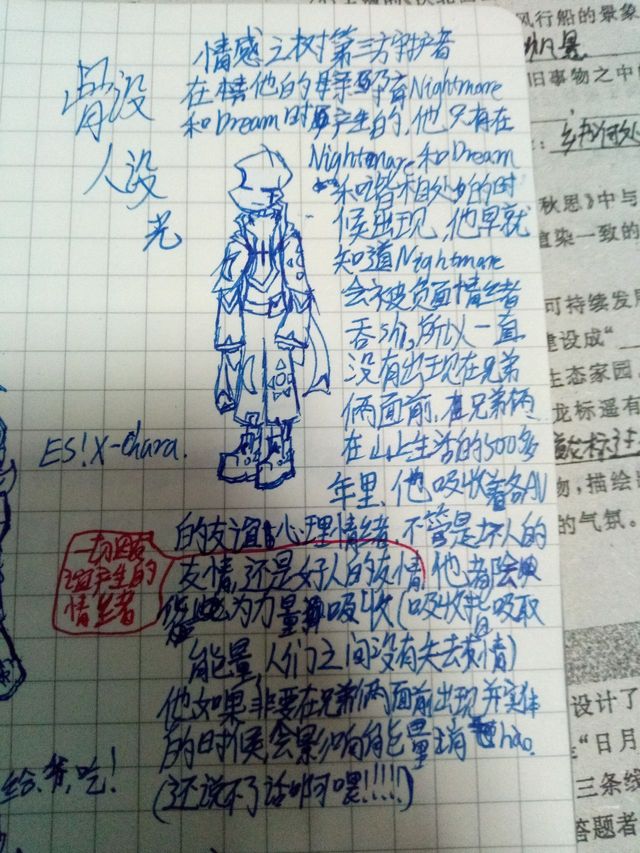 情感之树第三方守护者
背设
人设
光
在树 他的母亲孕育Nightmare
和Dream时产生的,他只有在
Nightmare和Dream
和谐相处的时
候出现,他早就
知道Nightmare
会被负面情绪
吞噬,所以一直
没有出现在兄弟
俩面前,在兄弟俩
在山上生活的500多
年里,他吸收着各AU
的友谊心理情绪,不管是坏人的
友情,还是好人的友情,他都会
为力量吸收(吸收指吸取
能量,人们之间没有失去友情)
他如果非要在兄弟俩面前出现并实体
的时候会影响能量消hao.
(还说不了话啊喂!!!!)
ES!X-Chara.
一切因友
谊产生的
情绪
给,爷,吃!
风行船的景象
旧事物之中的
秋思》中与
渲染一致的
可持续发展
建设成“
生态家园,
龙标遥有
物,描绘
的气氛。
设计了
“日月
三条线
答题者